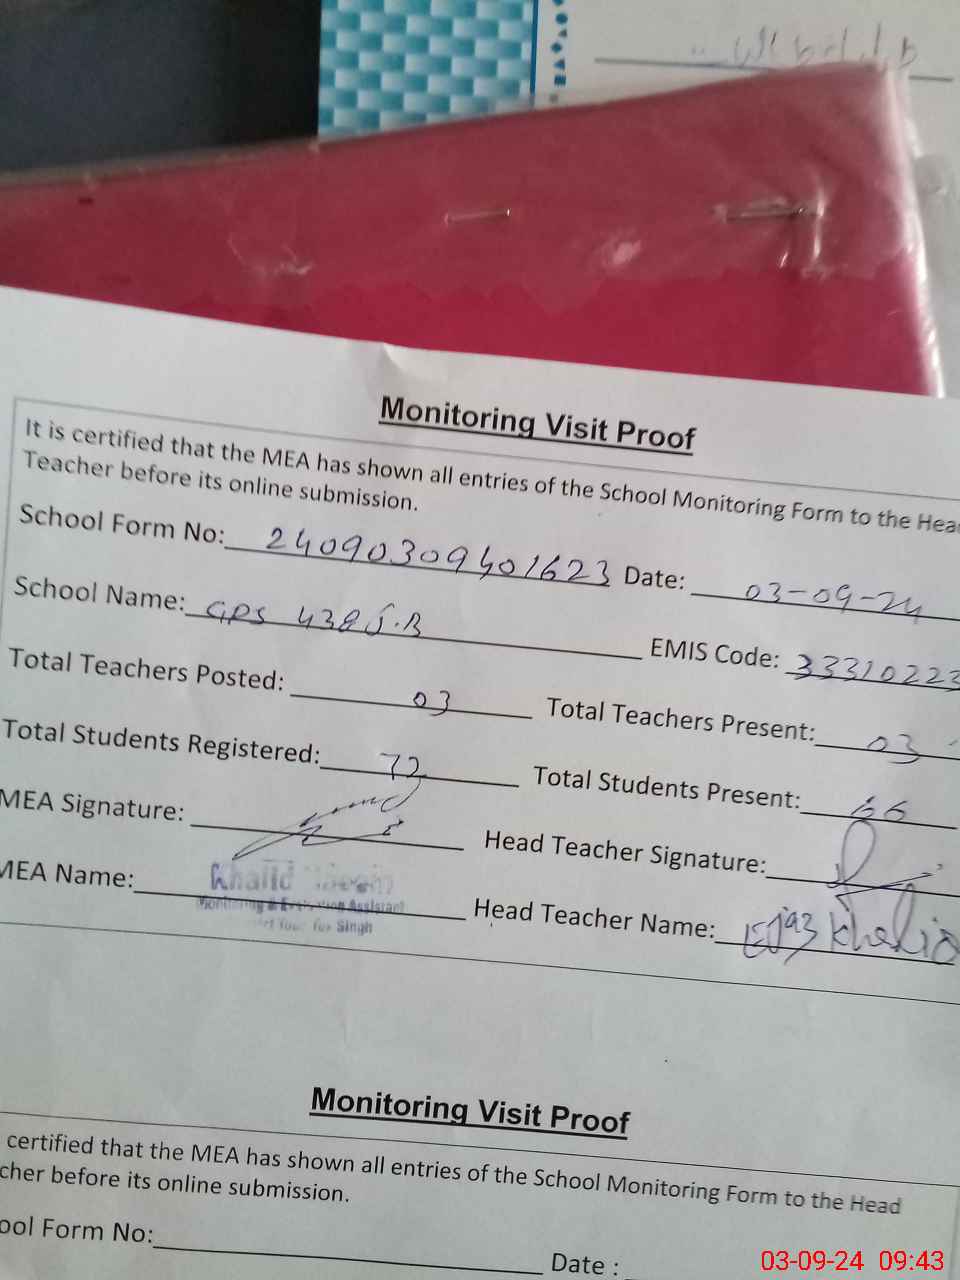 Monitoring Visit Proof
It is certified that the MEA has shown all entries of the School Monitoring Form to the Hea
Teacher before its online submission.
School Form No: 24090309401623 Date: 03-09-24
School Name: GPS 438 J.B EMIS Code: 33310223
Total Teachers Posted: 03 Total Teachers Present: 03
Total Students Registered: 72 Total Students Present: 66
MEA Signature: Head Teacher Signature:
MEA Name: Khalid Head Teacher Name: Ejaz Khalid
Monitoring & Evaluation Assistant
Singh
Monitoring Visit Proof
certified that the MEA has shown all entries of the School Monitoring Form to the Head
cher before its online submission.
ool Form No: Date :
03-09-24 09:43